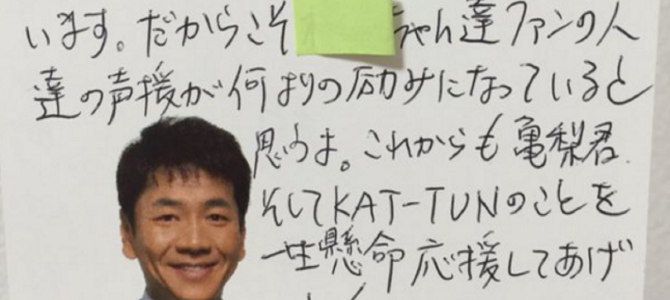 います。だからこそ ちゃん達ファンの人
達の声援が何よりの励みになっていると
思うよ。これからも亀梨君、
そしてKAT-TUNのことを
一生懸命応援してあげ